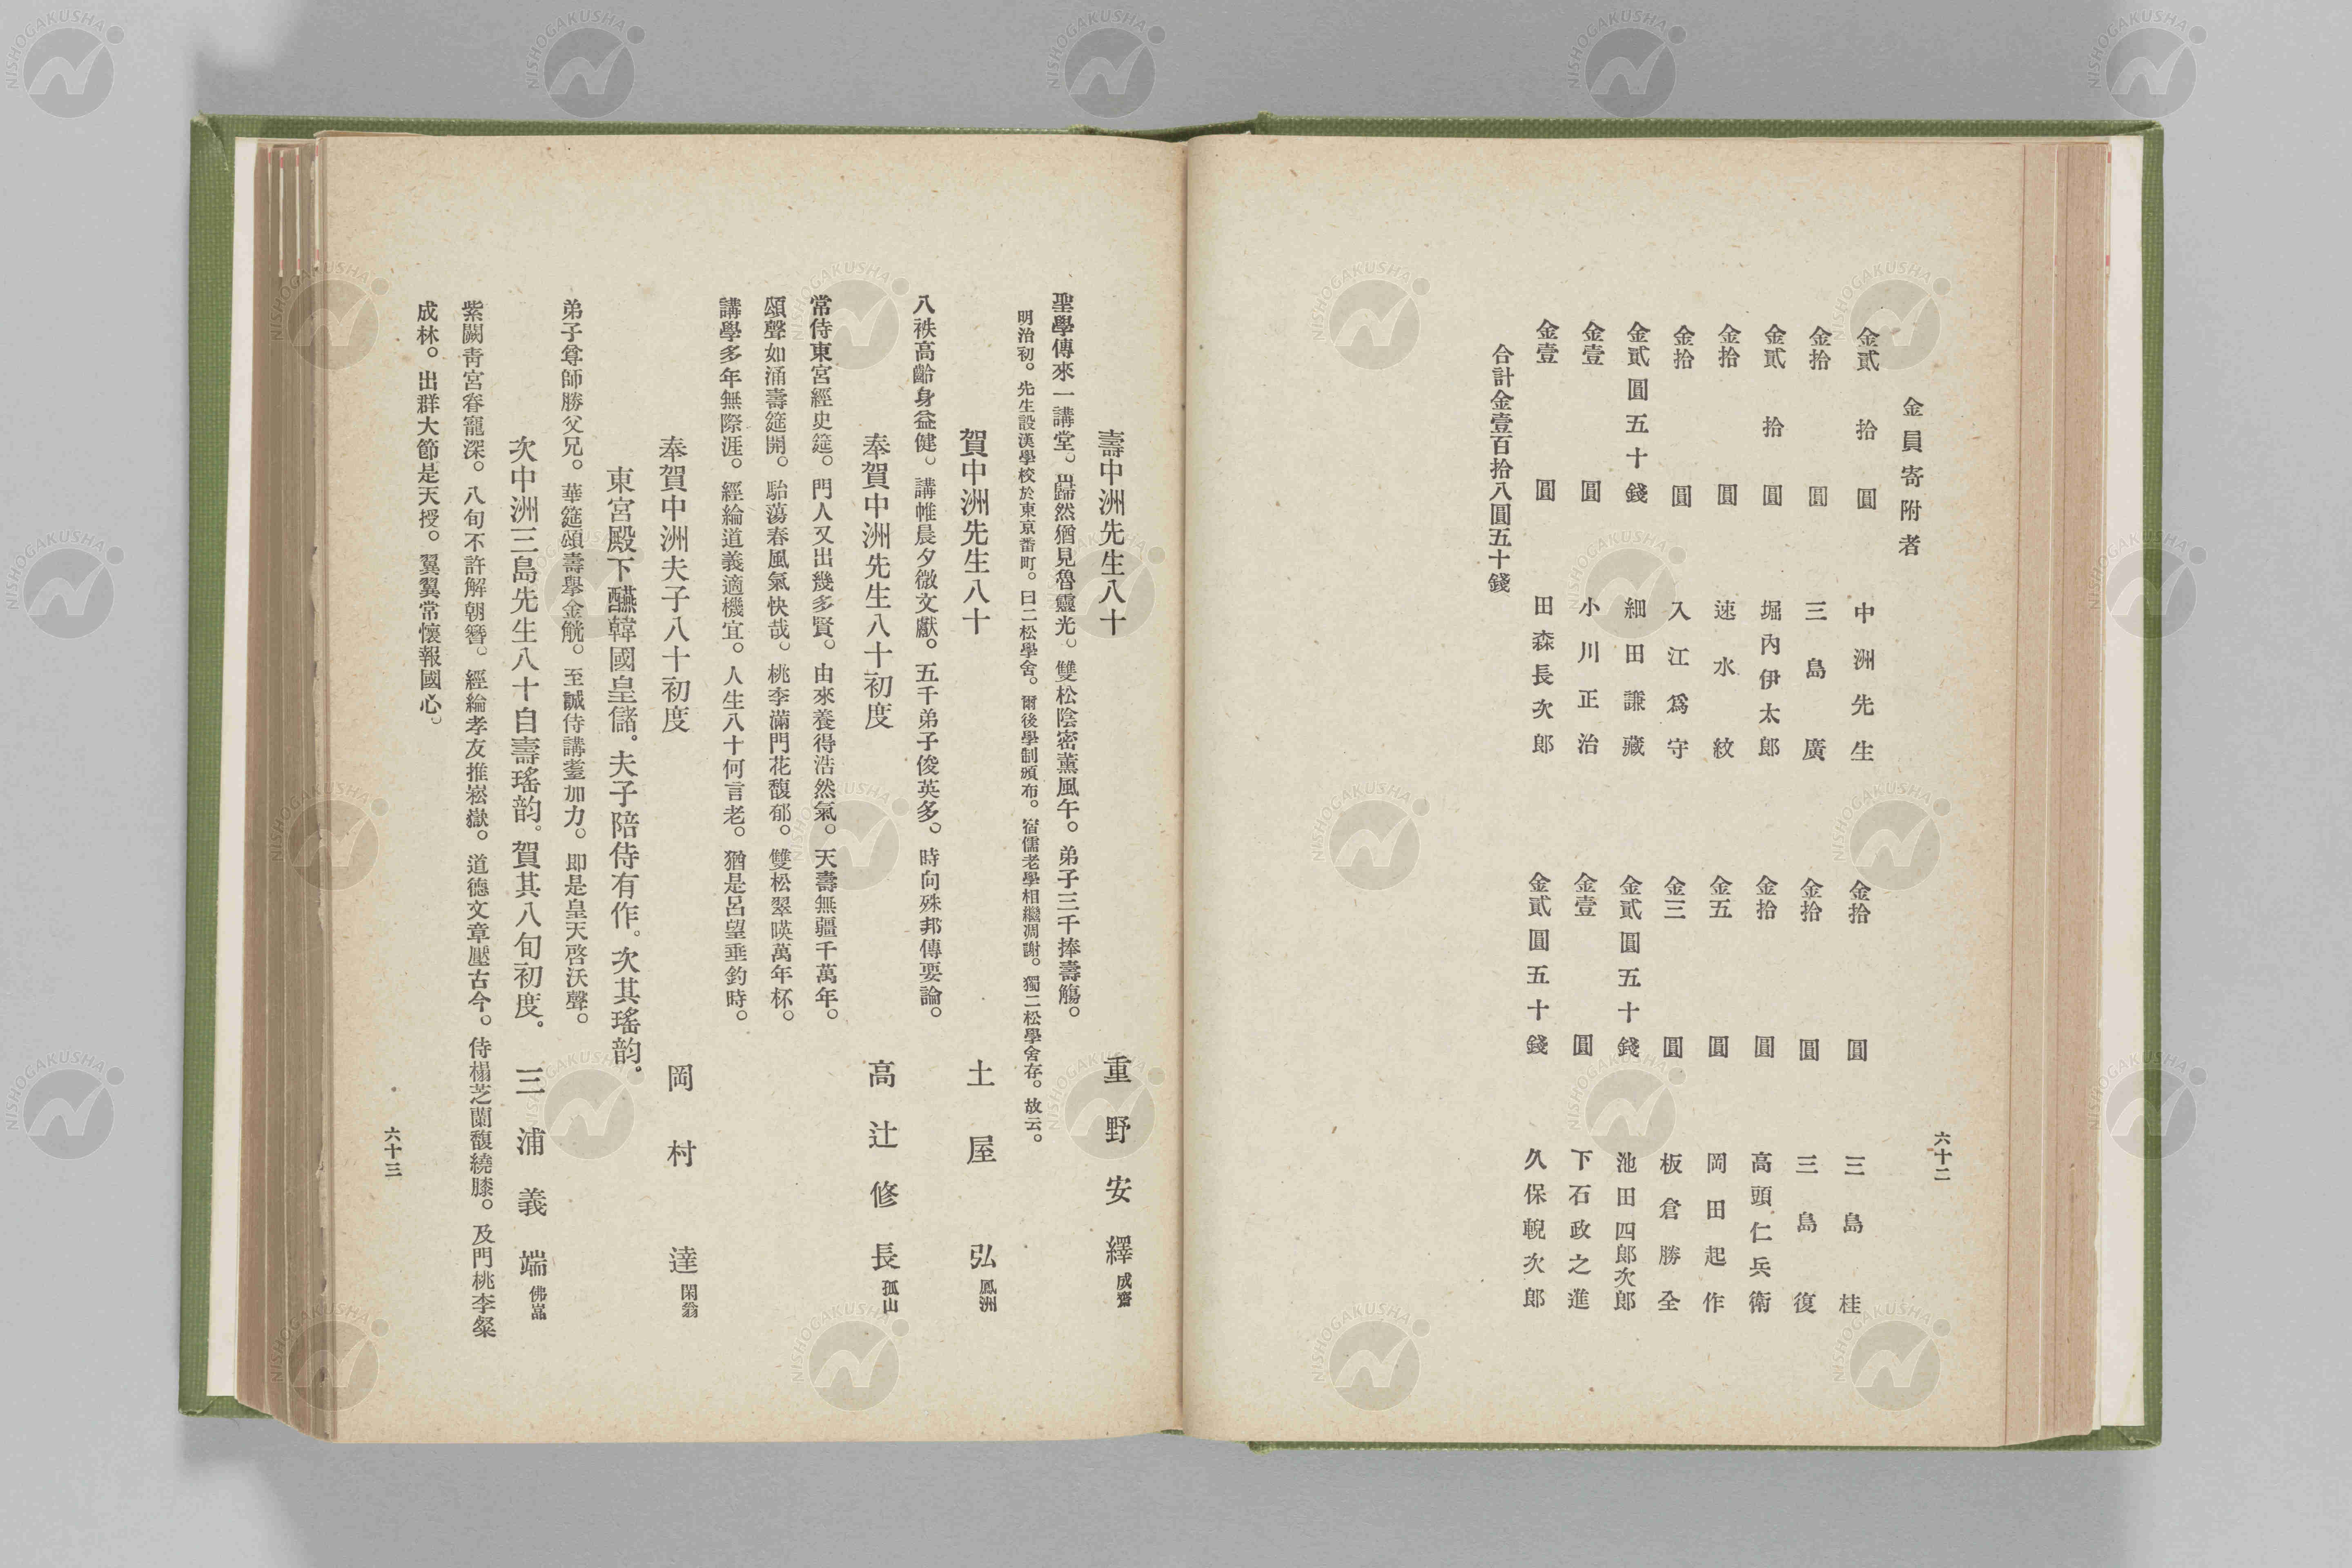 六十二
金員寄附者
金貳拾圓 中洲先生
金拾圓 三島廣
金貳拾圓 堀內伊太郎
金拾圓 速水紋
金拾圓 入江爲守
金貳圓五十錢 細田謙藏
金壹圓 小川正治
金壹圓 田森長次郎
金拾圓 三島桂
金拾圓 三島復
金拾圓 高頭仁兵衛
金五圓 岡田起作
金三圓 板倉勝全
金貳圓五十錢 池田四郎次郎
金壹圓 下石政之進
金貳圓五十錢 久保輗次郎
合計金壹百拾八圓五十錢
壽中洲先生八十 重野安繹 成齋
聖學傳來一講堂。巋然猶見魯靈光。雙松陰密薰風午。弟子三千捧壽觴。
明治初。先生設漢學校於東京番町。曰二松學舍。爾後學制頒布。宿儒老學相繼凋謝。獨二松學舍存。故云。
賀中洲先生八十 土屋弘 鳳洲
八袟高齡身益健。講帷晨夕徵文獻。五千弟子俊英多。時向殊邦傳要論。
奉賀中洲先生八十初度 高辻修長 孤山
常侍東宮經史筵。門人又出幾多賢。由來養得浩然氣。天壽無疆千萬年。
頌聲如涌壽筵開。駘蕩春風氣快哉。桃李滿門花馥郁。雙松翠暎萬年杯。
講學多年無際涯。經綸道義適機宜。人生八十何言老。猶是呂望垂釣時。
奉賀中洲夫子八十初度 岡村達 閑翁
東宮殿下醼韓國皇儲。夫子陪侍有作。次其瑤韵。
弟子尊師勝父兄。華筵頌壽擧金觥。至誠侍講耋加力。即是皇天啓沃聲。
次中洲三島先生八十自壽瑤韵。賀其八旬初度。 三浦義端 佛嵓
紫闕靑宮眷寵深。八旬不許解朝簪。經綸孝友推崧嶽。道德文章壓古今。侍榻芝蘭馥繞膝。及門桃李粲
成林。出群大節是天授。翼翼常懷報國心。
六十三
NISHOGAKUSHA